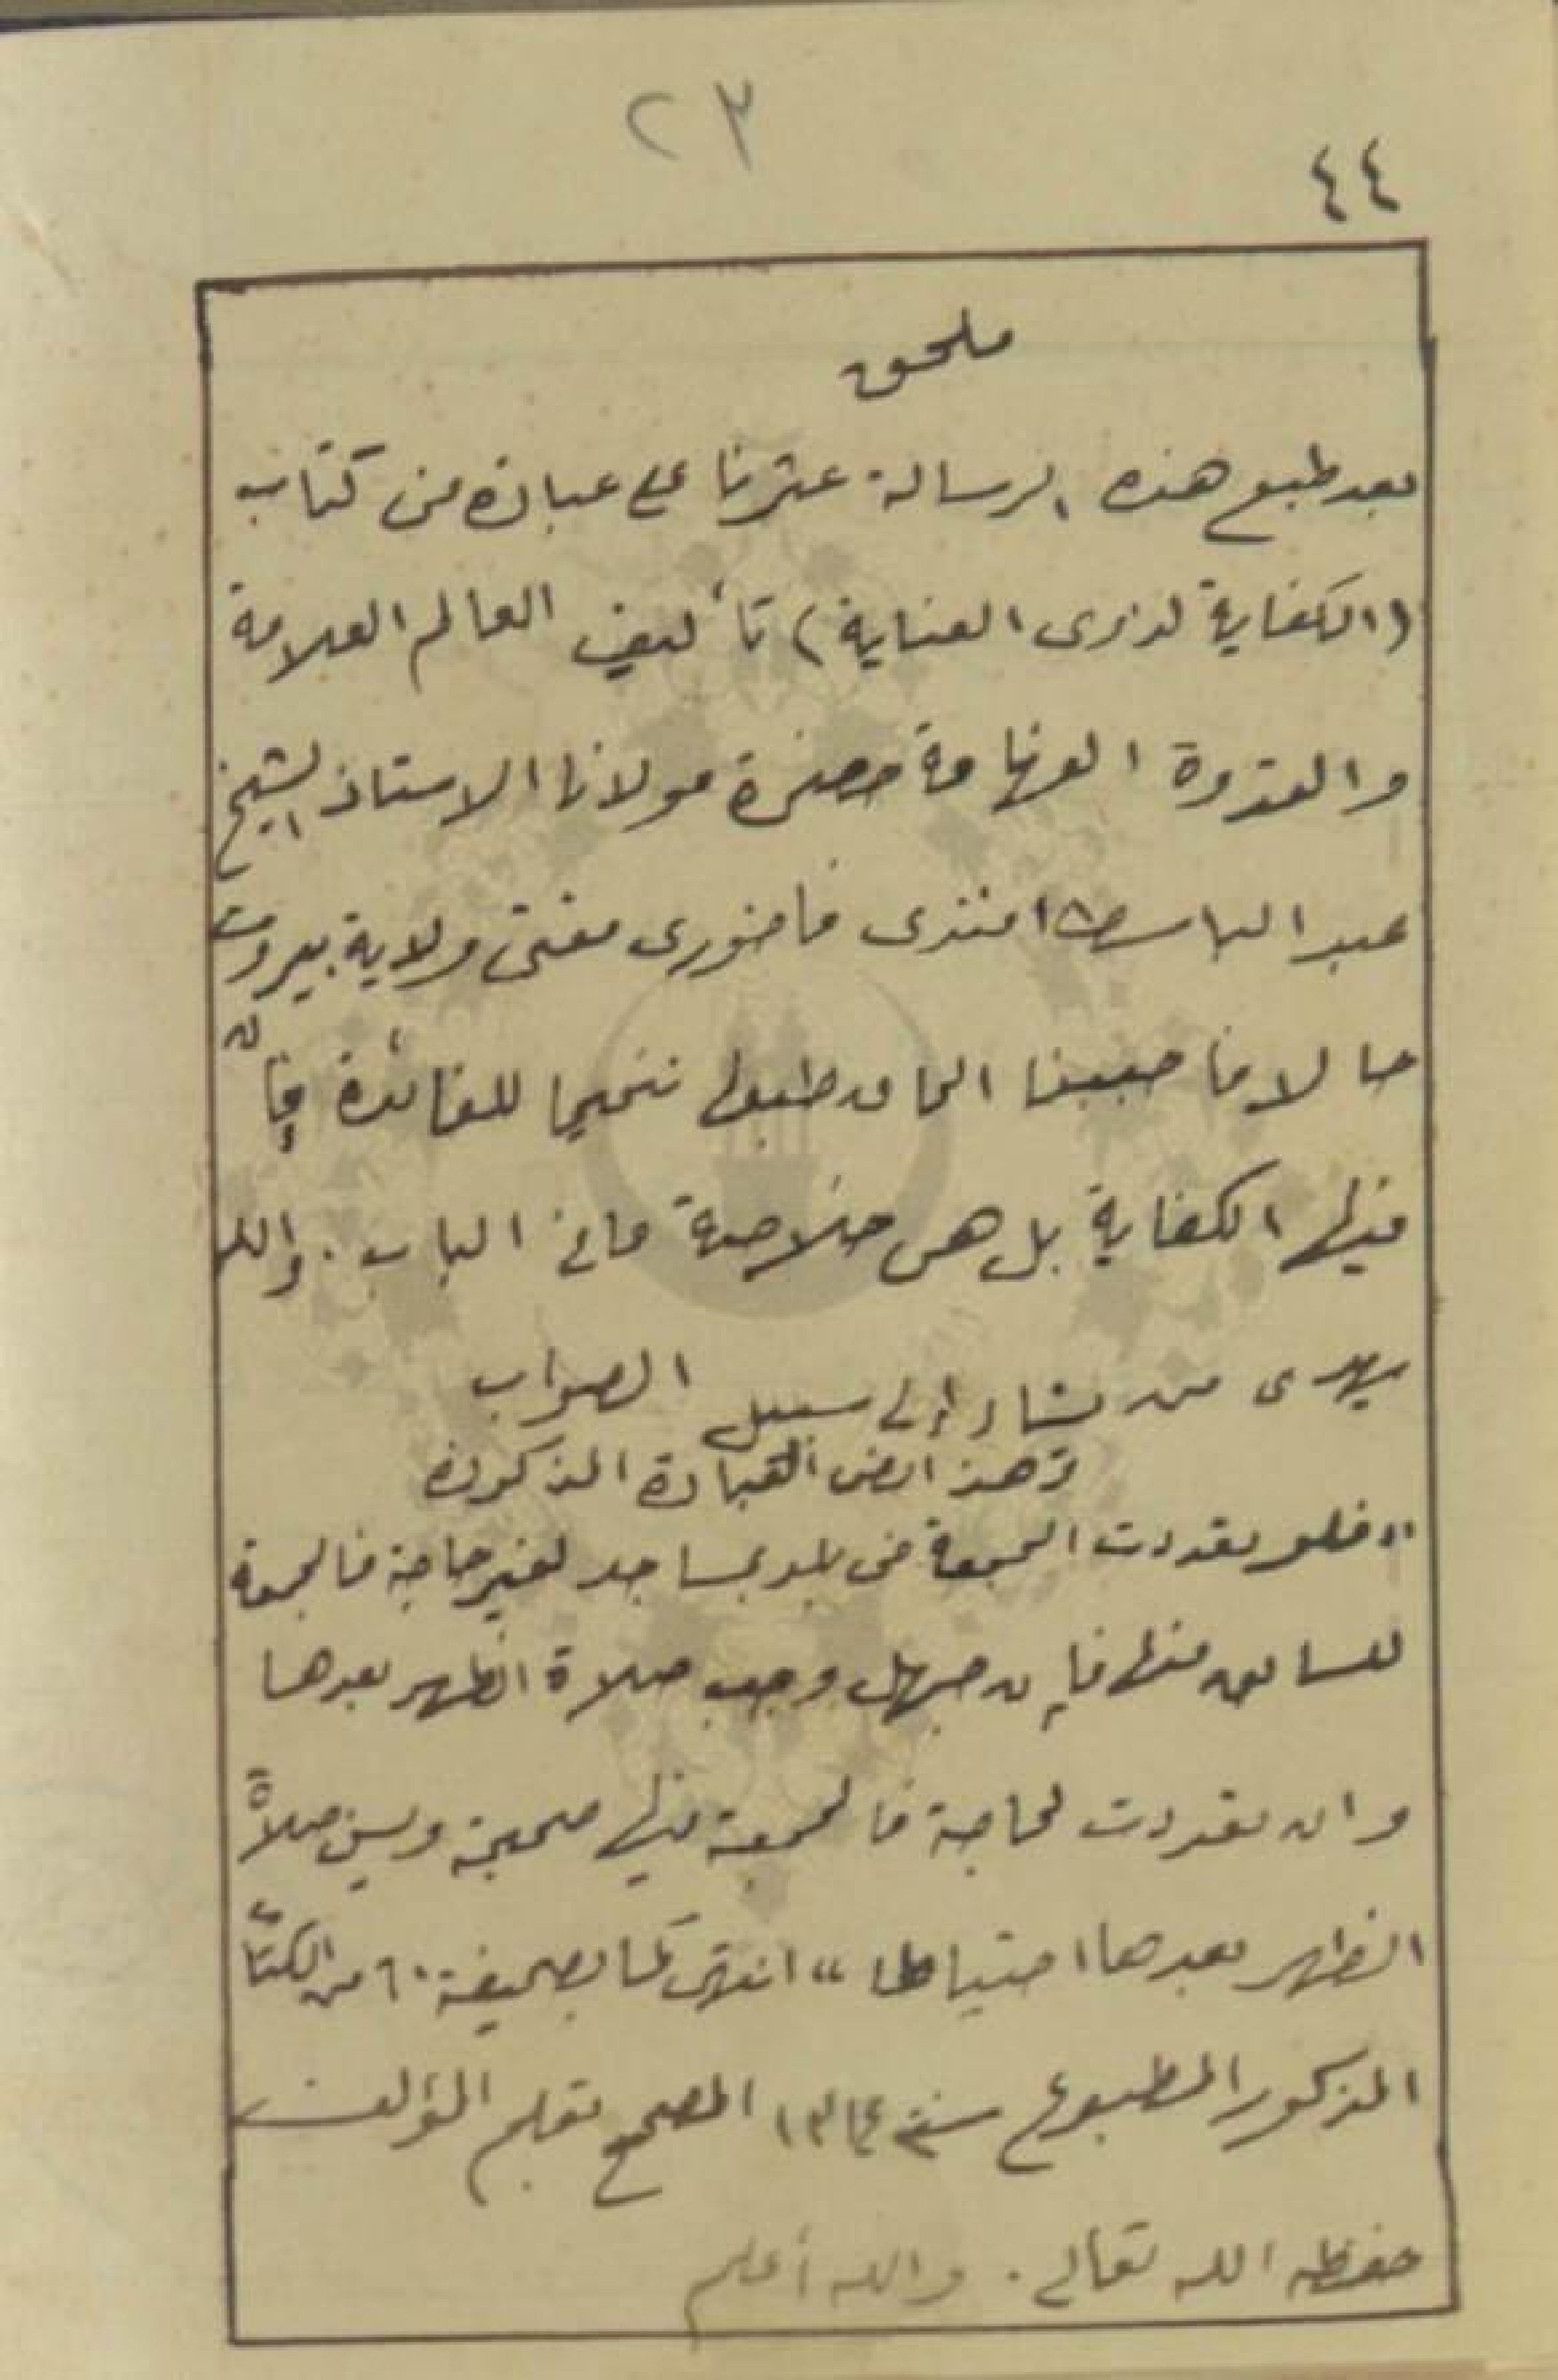 ٢٣
٤٤
ملحق
بعد طبع هذه الرسالة عثرنا على عبارة من كتاب
(الكفاية لذوى العناية) تأليف العالم العلامة
والقدوة الفهامة حضرة مولانا الاستاذ الشيخ
عبد الباسط افندى فاخورى مفتى ولاية بيروت
حالا فاحببنا الحاق طبعها تتميما للفائدة فإن
فيها الكفاية بل هى خلاصة ما فى الباب . والله
يهدى من يشاء إلى سبيل الصواب
وهذا نص العبارة المذكورة
"فلو تعددت الجمعة فى بلد بمساجد لغير حاجة فالجمعة
للسابق منها فإن جهل وجب صلاة الظهر بعدها
وان تعددت لحاجة فالجمعة فيها صحيحة ويسن صلاة
الظهر بعدها احتياطا" انتهى كما بصحيفة ٦٠ من الكتاب
المذكور المطبوع سنة المصحح بقلم المؤلف
حفظه الله تعالى . والله أعلم